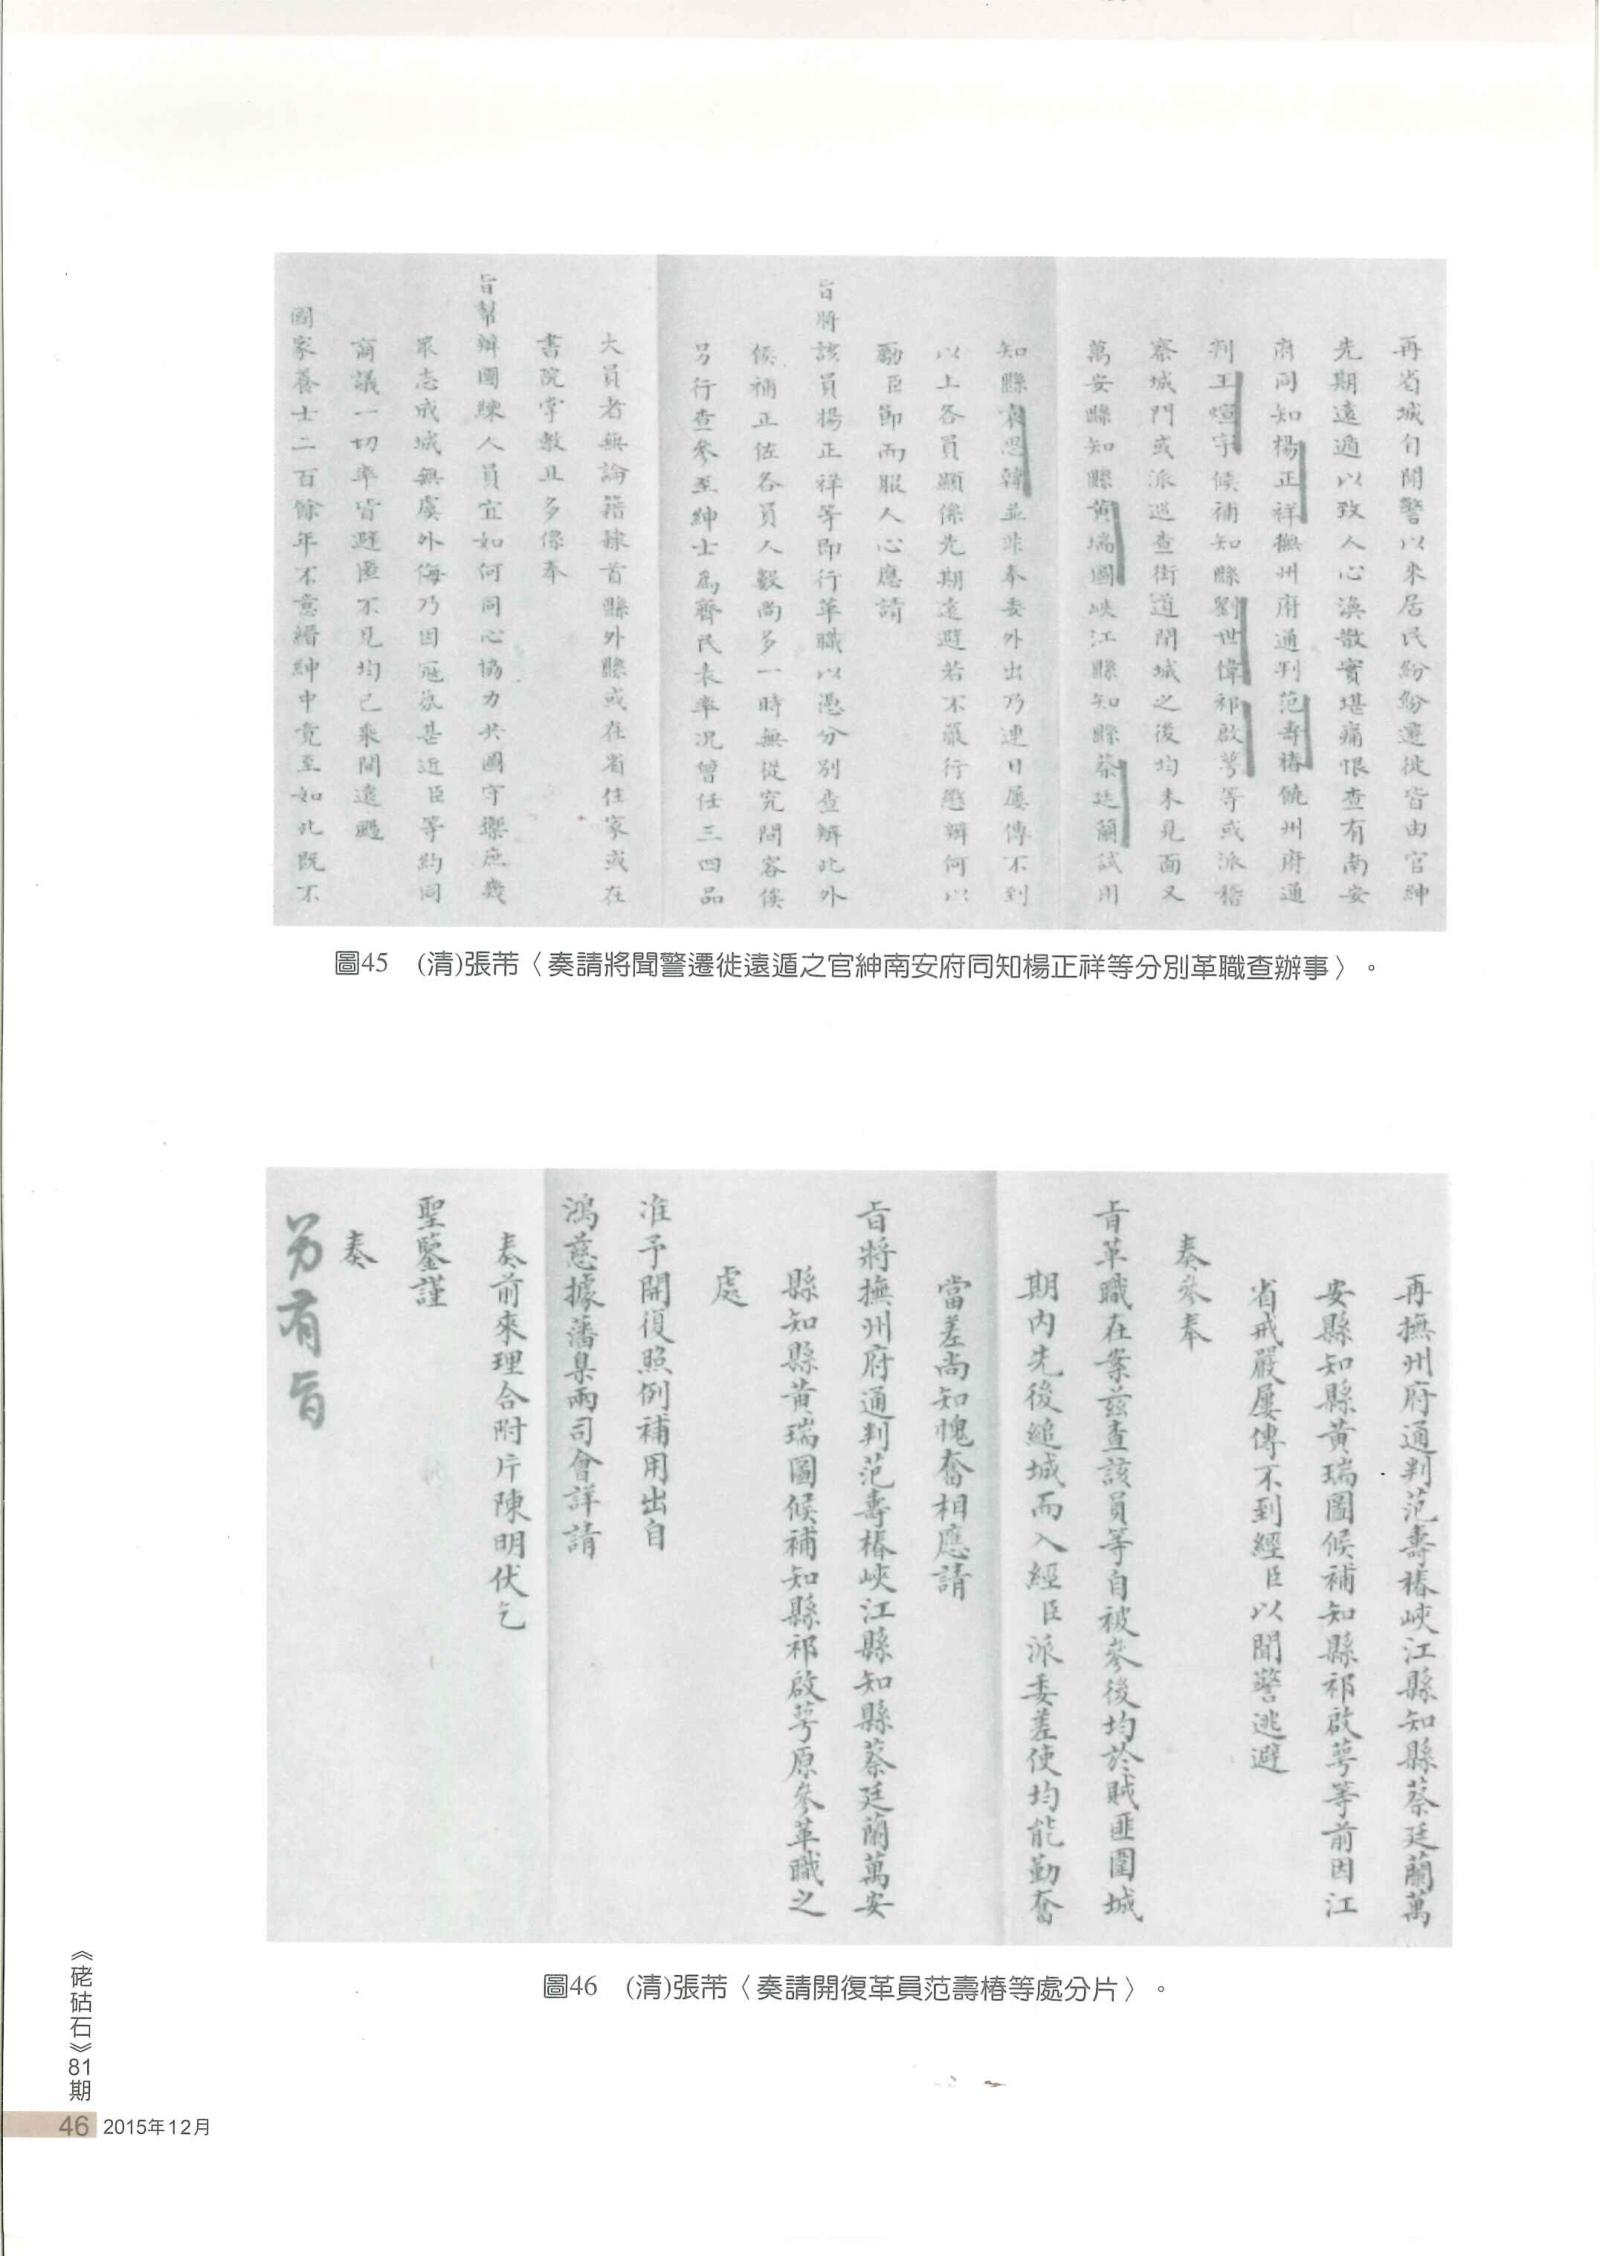 再省城自聞警以來居民紛紛遷徙皆由官紳
先期遠遁以致人心渙散實堪痛恨查有南安
府同知楊正祥撫州府通判范壽椿饒州府通
判王 宇候補知縣劉世偉祁啟萼等或派稽
察城門或派巡查街道閉城之後均未見面又
萬安縣知縣黃瑞圖峽江縣知縣蔡廷蘭試用
知縣袁思韓並非奉委外出乃連日屢傳不到
以上各員顯係先期遠避若不嚴行懲辦何以
勵臣節而服人心應請
旨將該員楊正祥等即行革職以憑分別查辦此外
候補正佐各員人數尚多一時無從究問容俟
另行查參至紳士為齊民表率況曾任三四品
大員者無論籍隸首縣外縣或在省住家或在
書院掌教且多係奉
旨幫辦團練人員宜如何同心協力共圖守禦庶幾
眾志成城無虞外侮乃因寇氛甚近臣等約同
商議一切率皆避匿不見均已乘間遠颺
國家養士二百餘年不意縉紳中竟至如此既不
圖45 (清)張芾〈奏請將聞警遷徙遠遁之官紳南安府同知楊正祥等分別革職查辦事〉。
再撫州府通判范壽椿峽江縣知縣蔡廷蘭萬
安縣知縣黃瑞圖候補知縣祁啟萼等前因江
省戒嚴屢傳不到經臣以聞警逃避
奏參奉
旨革職在案茲查該員等自被參後均於賊匪圍城
期內先後縋城而入經臣派委差使均能勤奮
當差尚知愧奮相應請
旨將撫州府通判范壽椿峽江縣知縣蔡廷蘭萬安
縣知縣黃瑞圖候補知縣祁啟萼原參革職之
處
准予開復照例補用出自
鴻慈據藩臬兩司會詳請
奏前來理合附片陳明伏乞
聖鑒謹
奏
另有旨
圖46 (清)張芾〈奏請開復革員范壽椿等處分片〉。
《硓𥑮石》81期
46 2015年12月